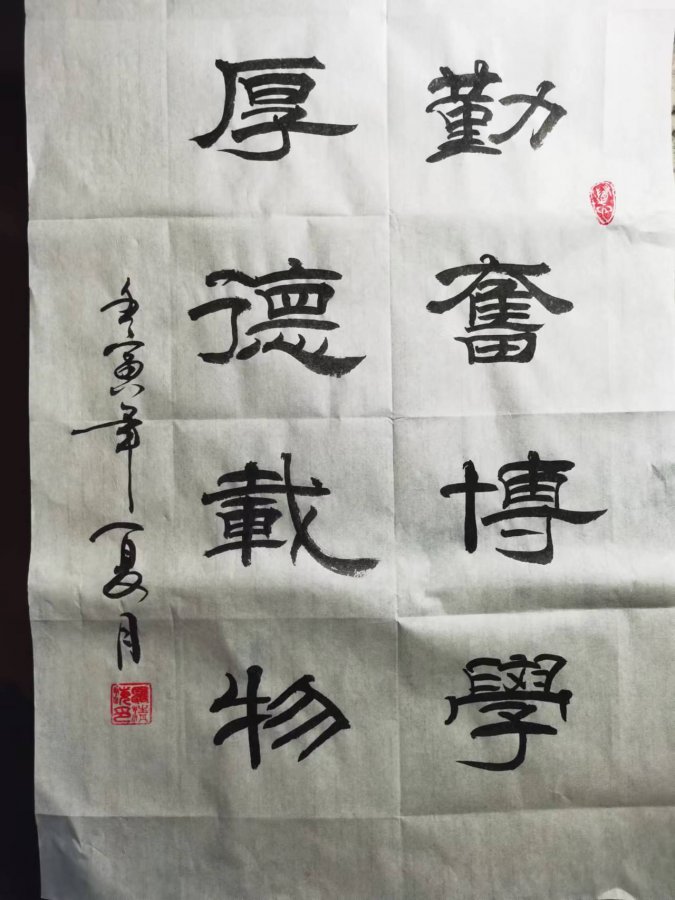 勤奮博學
厚德載物
壬寅年夏月